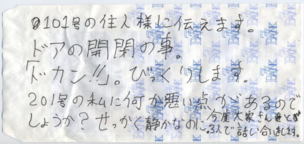 0101号の住人様に伝えます。
ドアの開閉の事。
「ドカン!!」。びっくりします。
201号の私に何か悪い点があるので
しょうか?せっかく静かなのに。
今度大家さんをとび
3人で話し合いします。